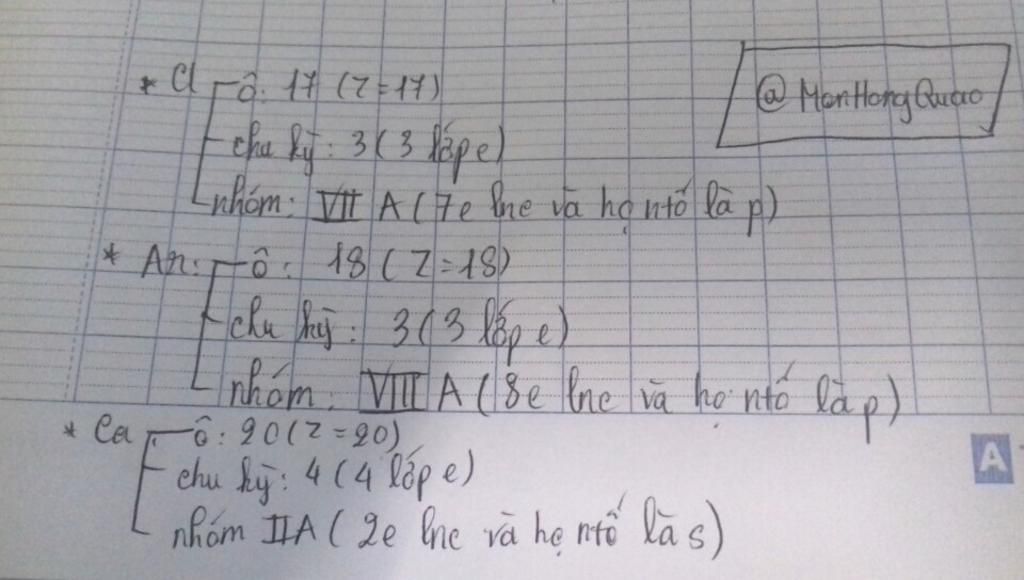 * Cl ô: 17 (Z=17)
@ManHongQuao
chu kỳ: 3 (3 lớp e)
nhóm: VII A (7e lnc và họ ntố là p)
* Ar: ô: 18 (Z=18)
chu kỳ: 3 (3 lớp e)
nhóm: VIII A (8e lnc và họ ntố là p)
* Ca ô: 20 (Z=20)
chu kỳ: 4 (4 lớp e)
nhóm IIA (2e lnc và họ ntố là s)
A